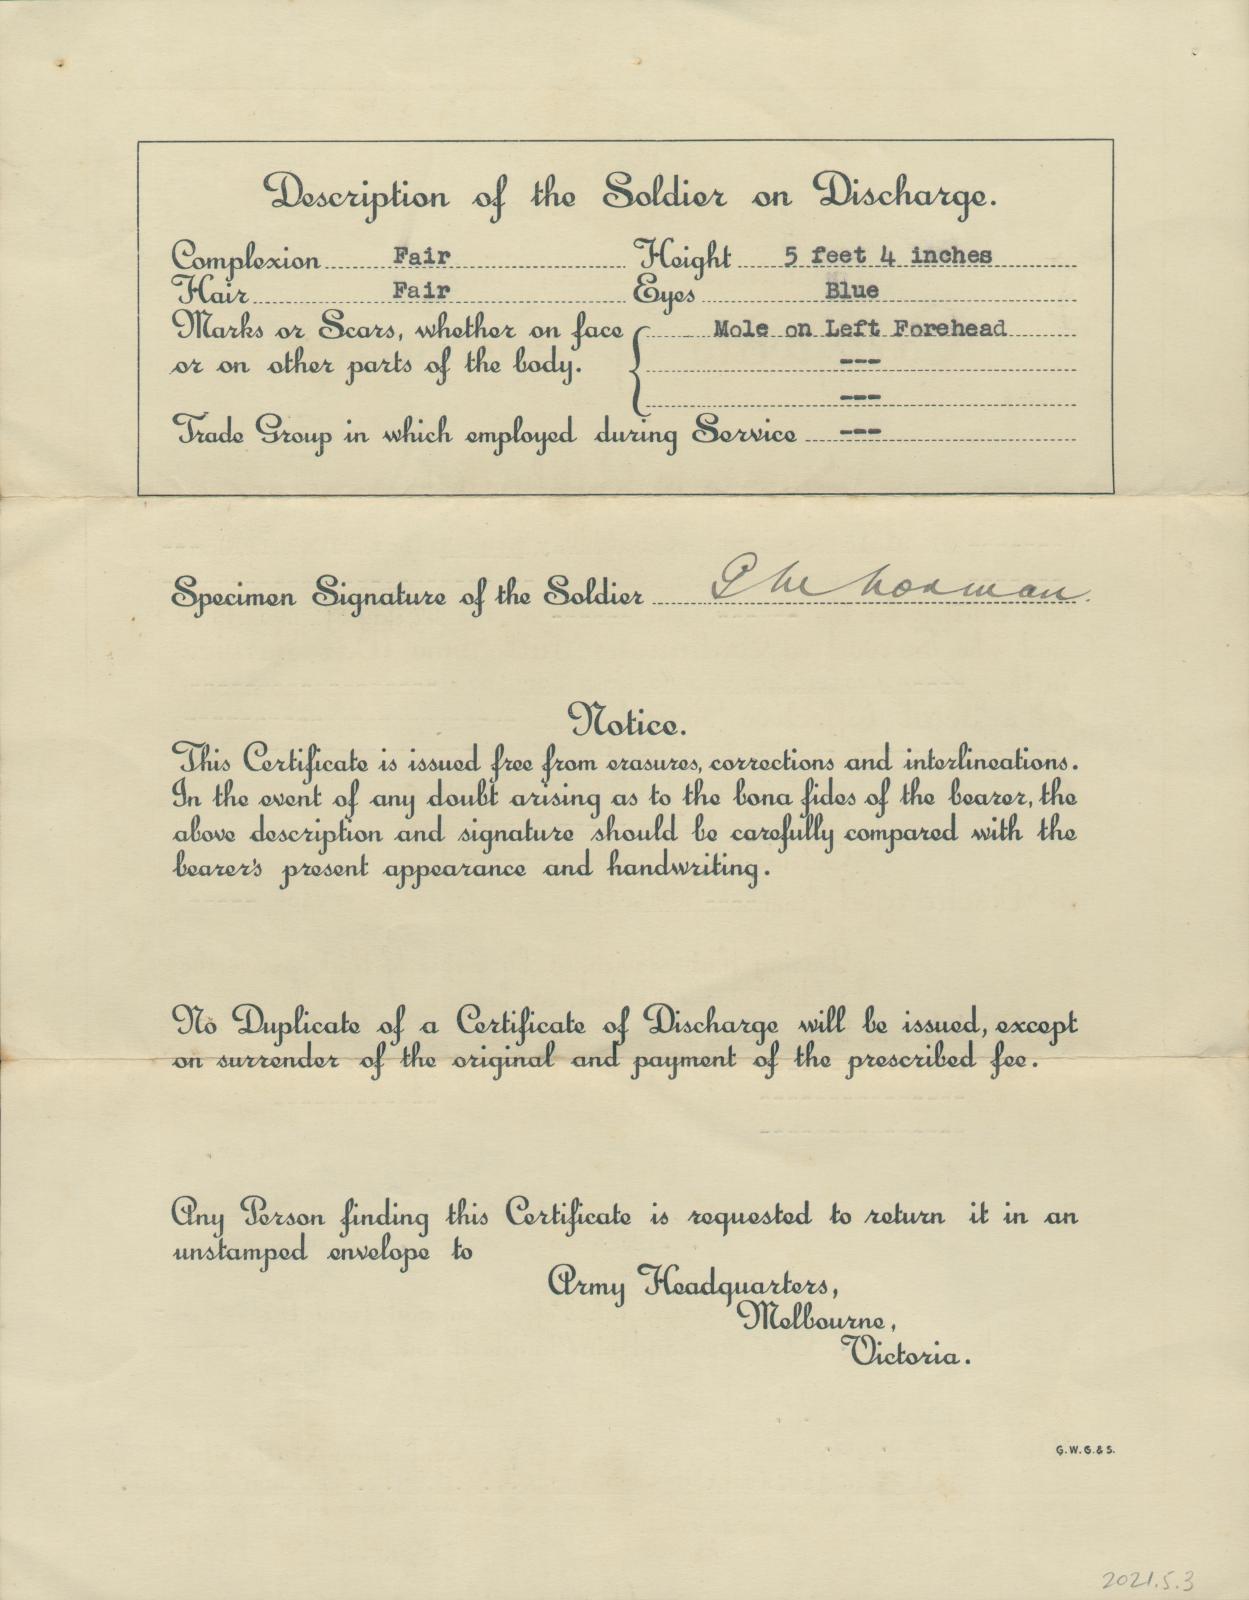 Description of the Soldier on Discharge.
Complexion Fair Height 5 feet 4 inches
Hair Fair Eyes Blue
Marks or Scars, whether on face Mole on Left Forehead
or on other parts of the body. ---
---
Trade Group in which employed during Service ---
Specimen Signature of the Soldier
Notice.
This Certificate is issued free from erasures, corrections and interlineations.
In the event of any doubt arising as to the bona fides of the bearer, the
above description and signature should be carefully compared with the
bearer's present appearance and handwriting.
No Duplicate of a Certificate of Discharge will be issued, except
on surrender of the original and payment of the prescribed fee.
Any Person finding this Certificate is requested to return it in an
unstamped envelope to
Army Headquarters,
Melbourne,
Victoria.
G.W.G.&S.
2021.5.3